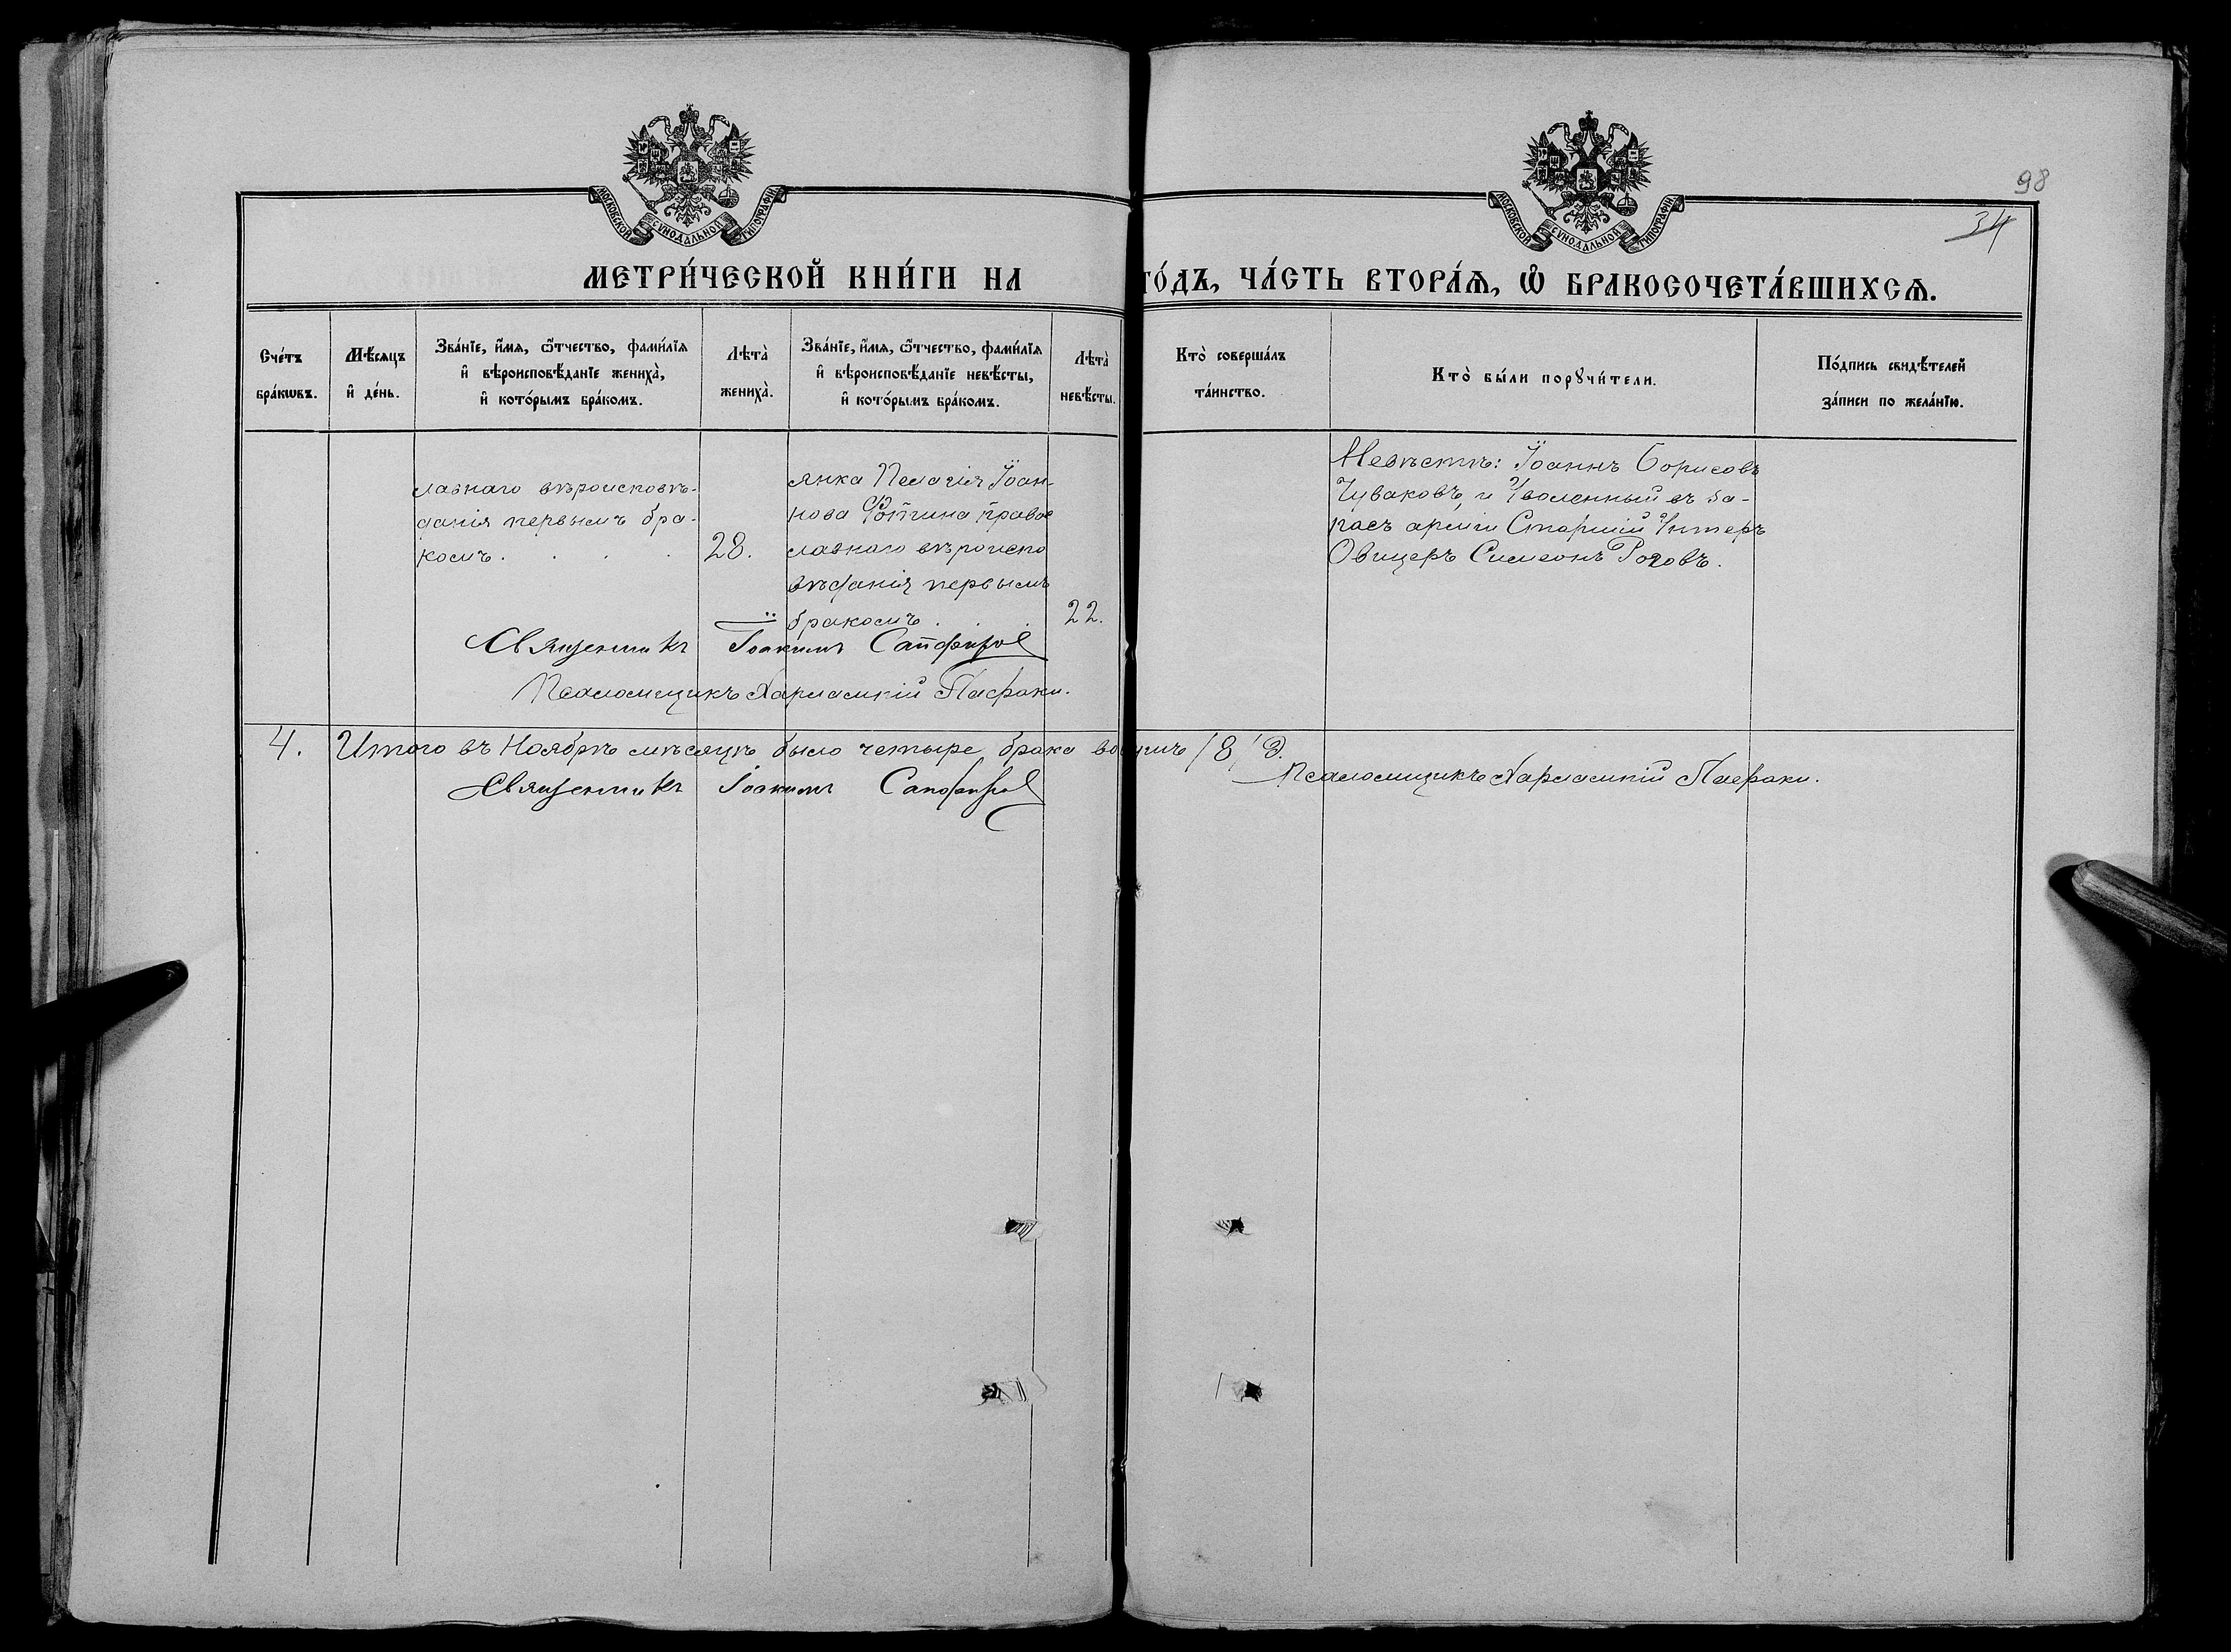 98
34
МОСКОВСКОЙ СѴНОДАЛЬНОЙ ТИПОГРАФІИ
МОСКОВСКОЙ СѴНОДАЛЬНОЙ ТИПОГРАФІИ
МЕТРИ́ЧЕСКОЙ КНИ́ГИ НА ГО́ДЪ, ЧА́СТЬ ВТОРА́Ѧ, Ѽ БРАКОСОЧЕТА́ВШИХСѦ.
Сче́тъ бра́кѡвъ.
Мѣ́сяцъ и҆ де́нь.
Зва́нїе, и҆́мѧ, ѻ҆́тчество, фами́лїѧ
и҆ вѣроисповѣ́данїе жениха̀,
и҆ кото́рымъ бра́комъ.
Лѣта̀ жениха̀.
Зва́нїе, и҆́мѧ, ѻ҆́тчество, фами́лїѧ
и҆ вѣроисповѣ́данїе невѣ́сты,
и҆ кото́рымъ бра́комъ.
Лѣта̀ невѣ́сты.
Кто̀ соверша́лъ та́инство.
Кто̀ бы́ли порꙋчи́тели.
По́дпись свидѣ́телей
за́писи по жела́нїю.
лавнаго вѣроисповѣ-
данія первымъ бра-
комъ.
28.
янка Пелагія Іоан-
нова Фотина право
славнаго вѣроиспо
вѣданія первымъ
бракомъ.
22.
Невѣстѣ: Іоаннъ Борисовъ
Чуваковъ, и Уволенный въ за-
пасъ арміи Старшій Унтеръ
Офицеръ Симеонъ Роговъ.
Священникъ Іоакимъ Сапфиров
Псаломщикъ Харлампій
4. Итого въ Ноябрѣ мѣсяцѣ было четыре брака
Священникъ Іоакимъ Сапфиров
Псаломщикъ Харлампій